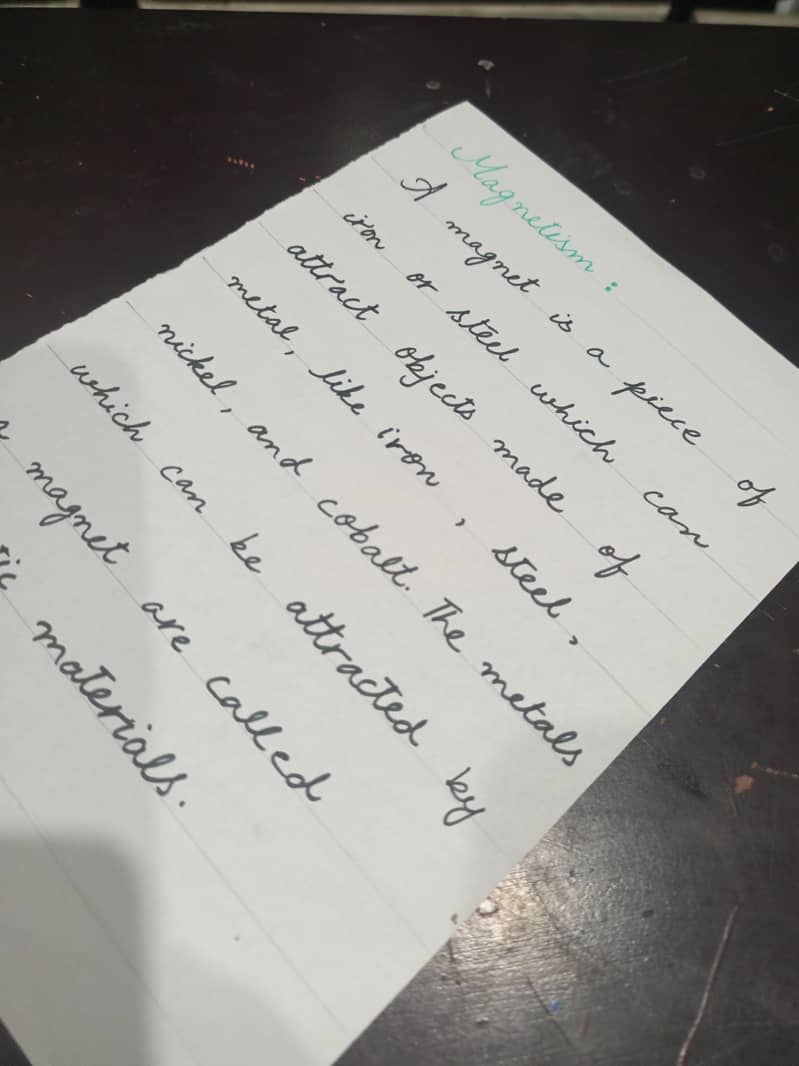 Magnetism :
A magnet is a piece of
iron or steel which can
attract objects made of
metal, like iron, steel,
nickel, and cobalt. The metals
which can be attracted by
magnet are called
materials.